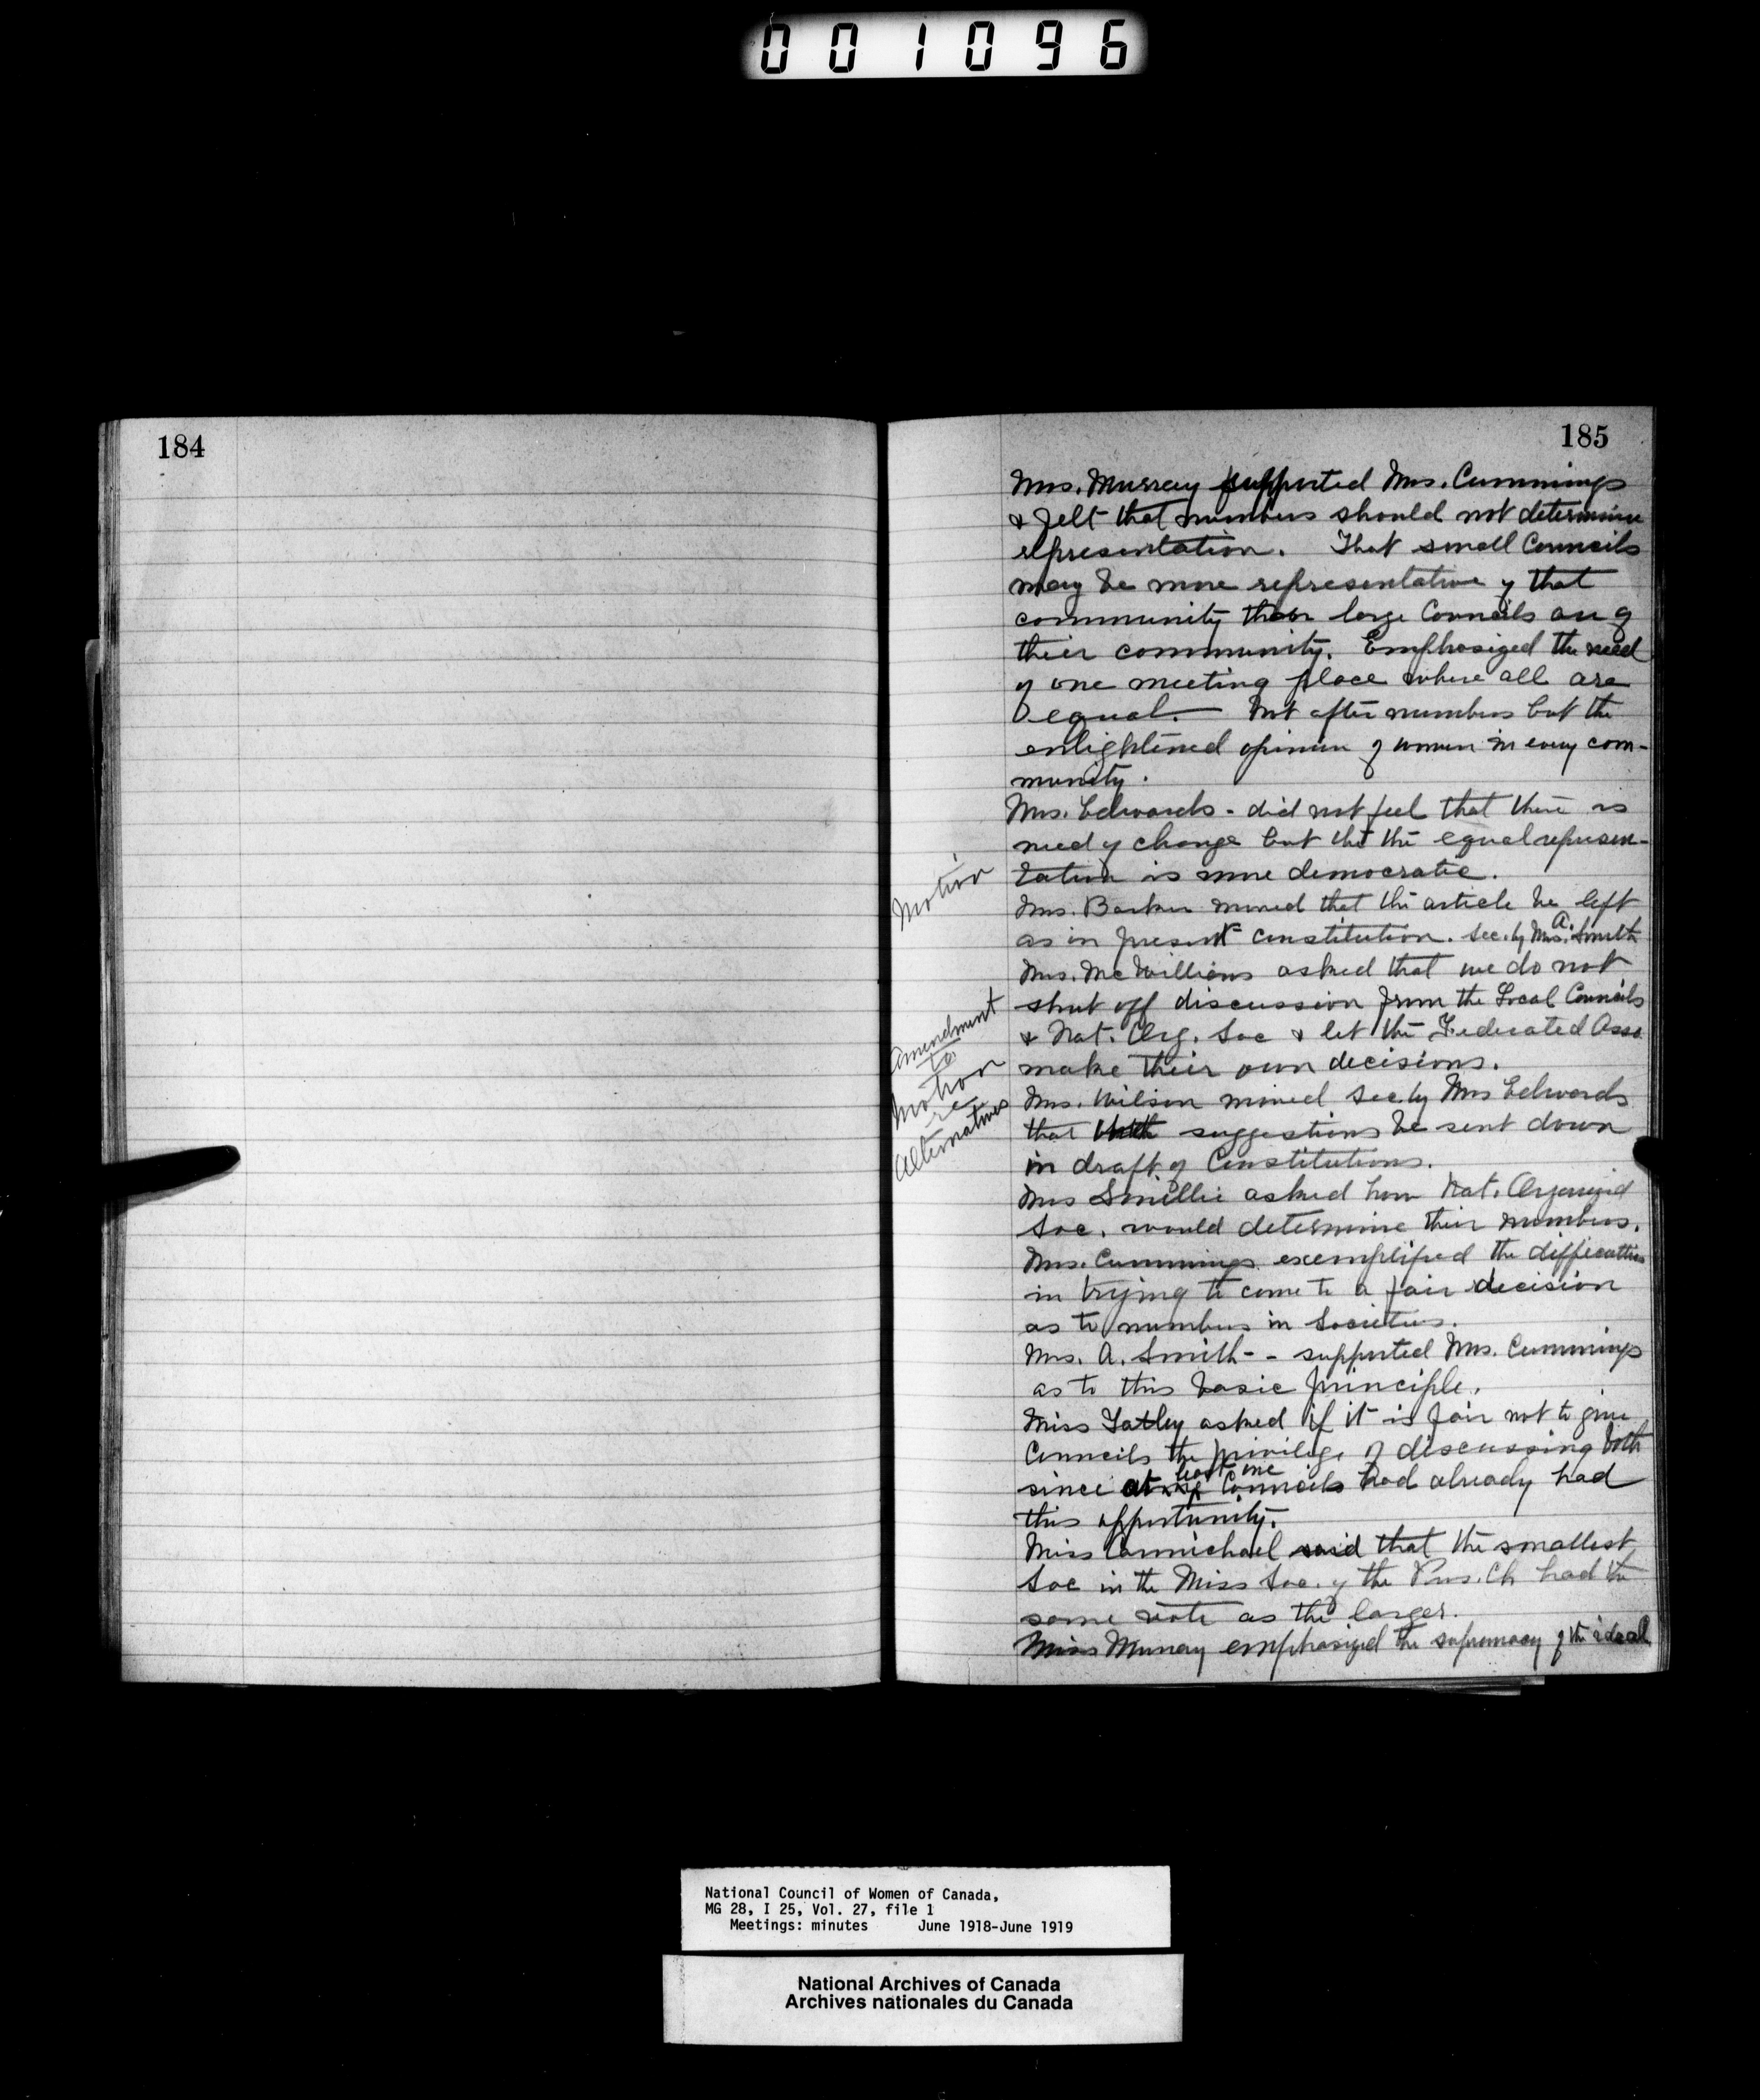 001096
184
185
Mrs. Murray supported Mrs. Cummings
& felt that numbers should not determine
representation. That small Councils
may be more representative of that
community than large Councils are of
their community. Emphasized the need
of one meeting place where all are
equal. Not after numbers but the
enlightened opinion of women in every com-
munity.
Mrs. Edwards - did not feel that there is
need of change but tht the equal represen-
tation is more democratic.
Motion
Mrs. Barker moved that the article be left
as in present constitution. Sec. by Mrs. A. Smith
Mrs. McWilliams asked that we do not
shut off discussion from the Local Councils
& Nat. Org. Soc & let the Federated Asso
make their own decisions.
Amendment
to
Motion
re
Alternatives
Mrs. Wilson moved sec. by Mrs Edwards
that both suggestions be sent down
in draft of Constitutions.
Mrs Smillie asked how Nat. Organized
Soc. would determine their numbers.
Mrs. Cummings exemplified the difficulties
in trying to come to a fair decision
as to numbers in Societies.
Mrs. A. Smith - - supported Mrs. Cummings
as to this basic principle.
Miss Yatley asked if it is fair not to give
Councils the privilege of discussing both
since at least one Councils had already had
this opportunity.
Miss Carmichael said that the smallest
Soc in the Miss Soc. of the Pres. Ch had the
same vote as the larger.
Miss Murray emphasized the supremacy of the ideal
National Council of Women of Canada,
MG 28, I 25, Vol. 27, file 1
Meetings: minutes June 1918-June 1919
National Archives of Canada
Archives nationales du Canada